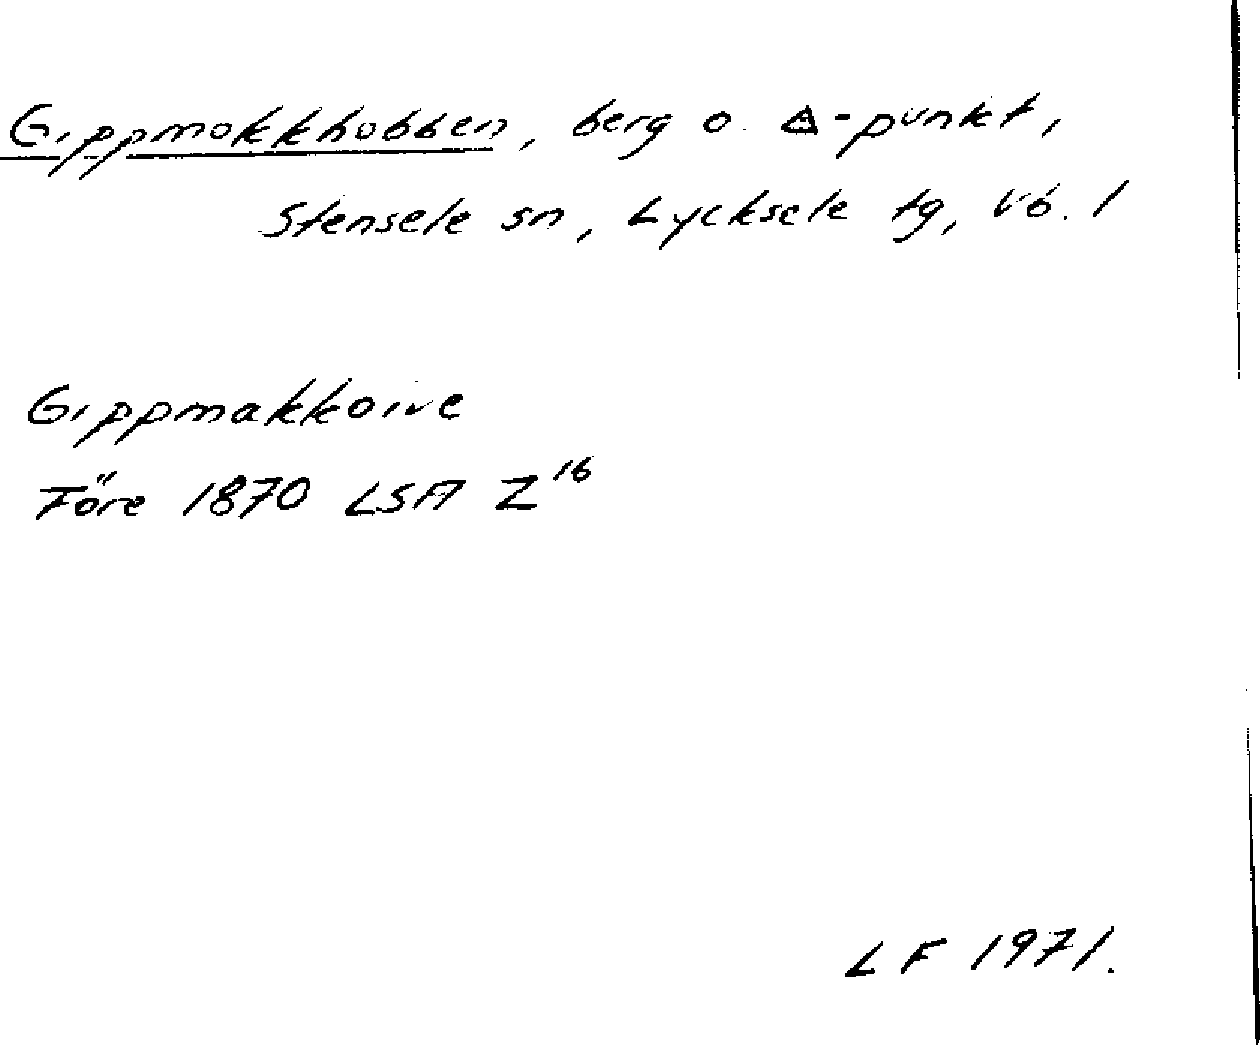 Gippmokkhobben, berg o. △-punkt,
Stensele sn, Lycksele tg, Vb. l
Gippmakkoive
Före 1870 LSA Z¹⁶
LF 1971.